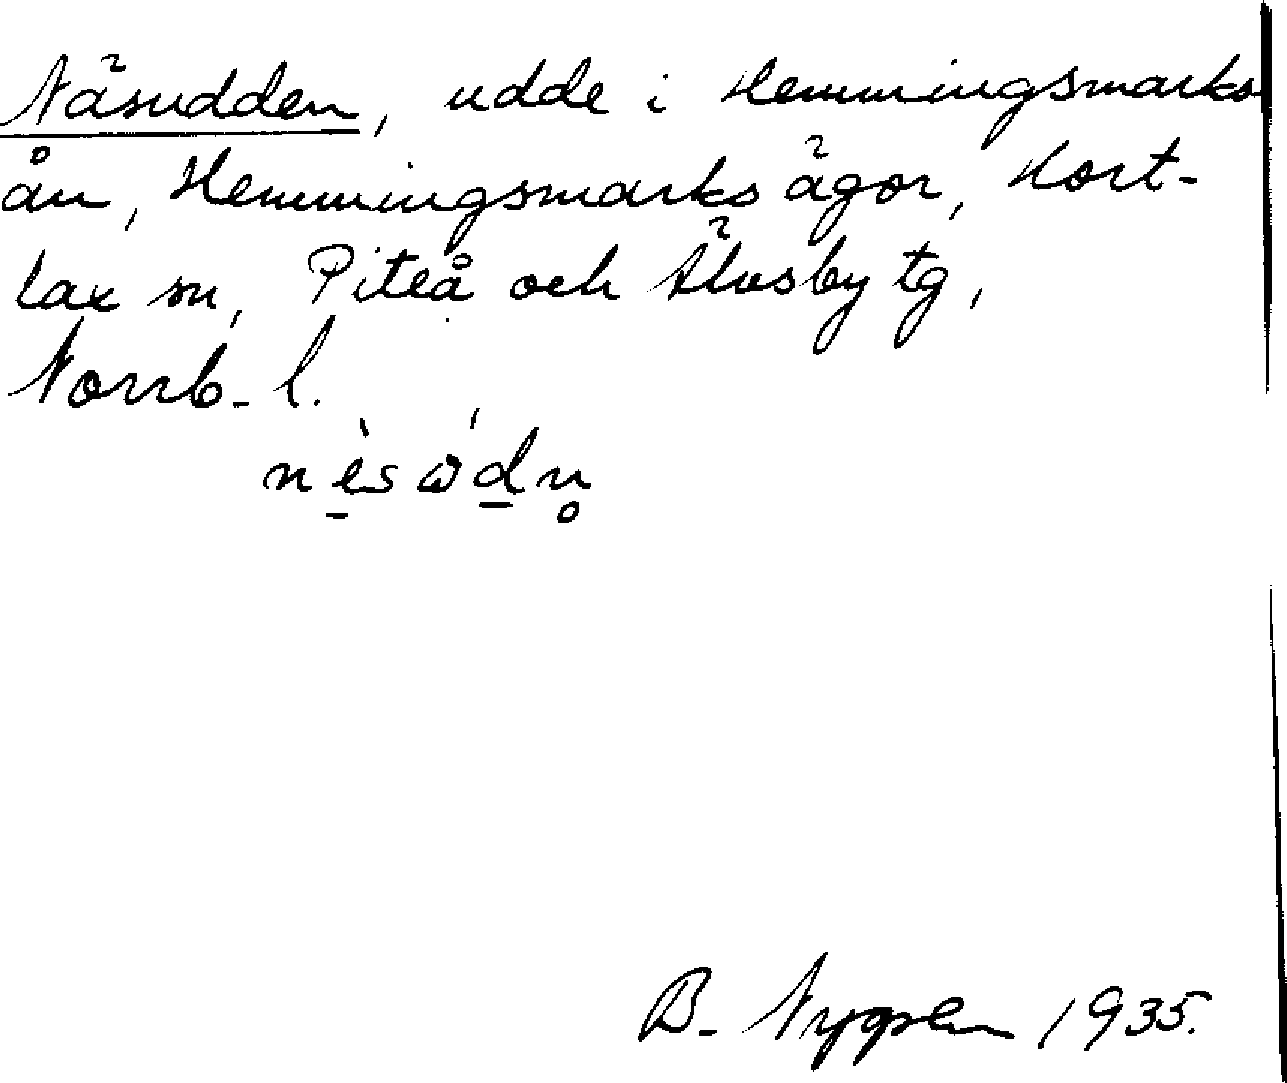 Näsudden, udde i Hemmingsmarks-
ån, Hemmingsmarks ägor, Hort-
lax sn, Piteå och Älvsby tg,
Norrb. l.
B. Nygren 1935.